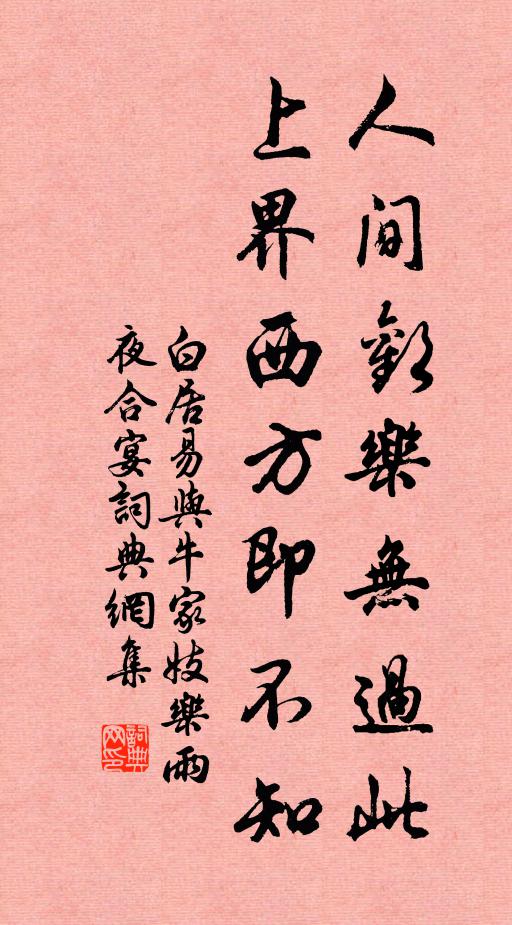 人間歡樂無過此
上界西方即不知
白居易與牛家妓樂雨
夜合宴詞典網集
詞典网印